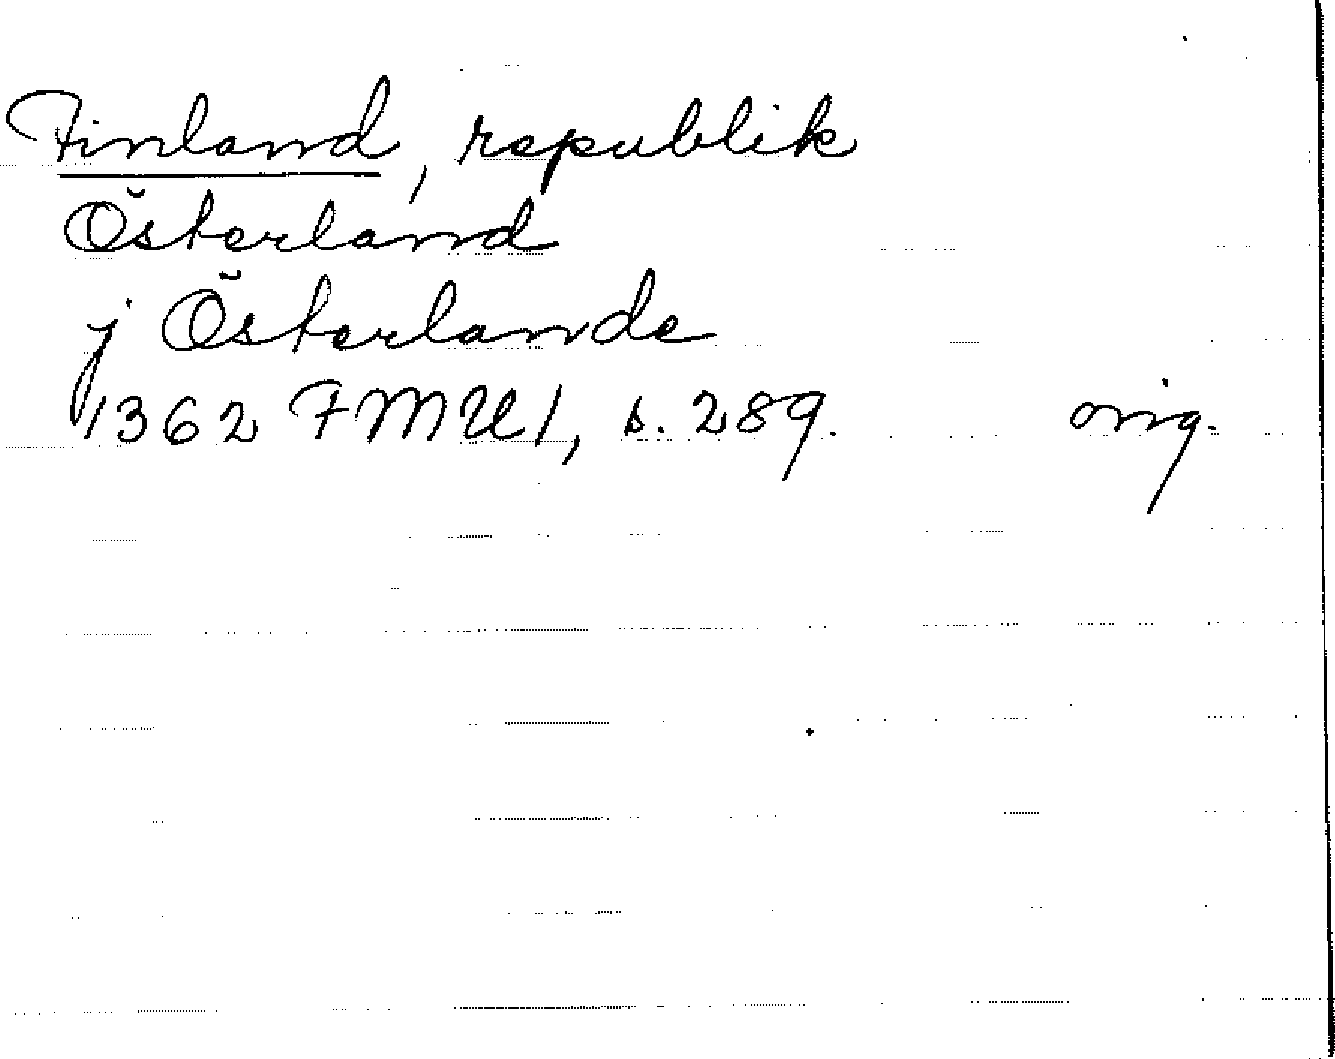 Finland, republik
Österland
j Österlande
1362 FMU1, s. 289. orig.